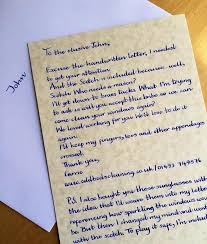 John
To the elusive Johns,
Excuse the handwritten letter, I needed
to get your attention.
And the Scotch is included because, well,
Scotch. Who needs a reason?
I'll get down to brass tacks. What I'm trying
to ask is will you accept this bribe so we can
come clean your windows again?
We loved working for you. We'd love to do it
again.
I'll keep my fingers, toes and other appendages
crossed.
Thank you,
P.S. I also bought you these sunglasses with
the idea that I'll weave them into my letter
referencing how sparkling the windows would
be. But then I changed my mind and went
with the scotch. To play it safe, I'm